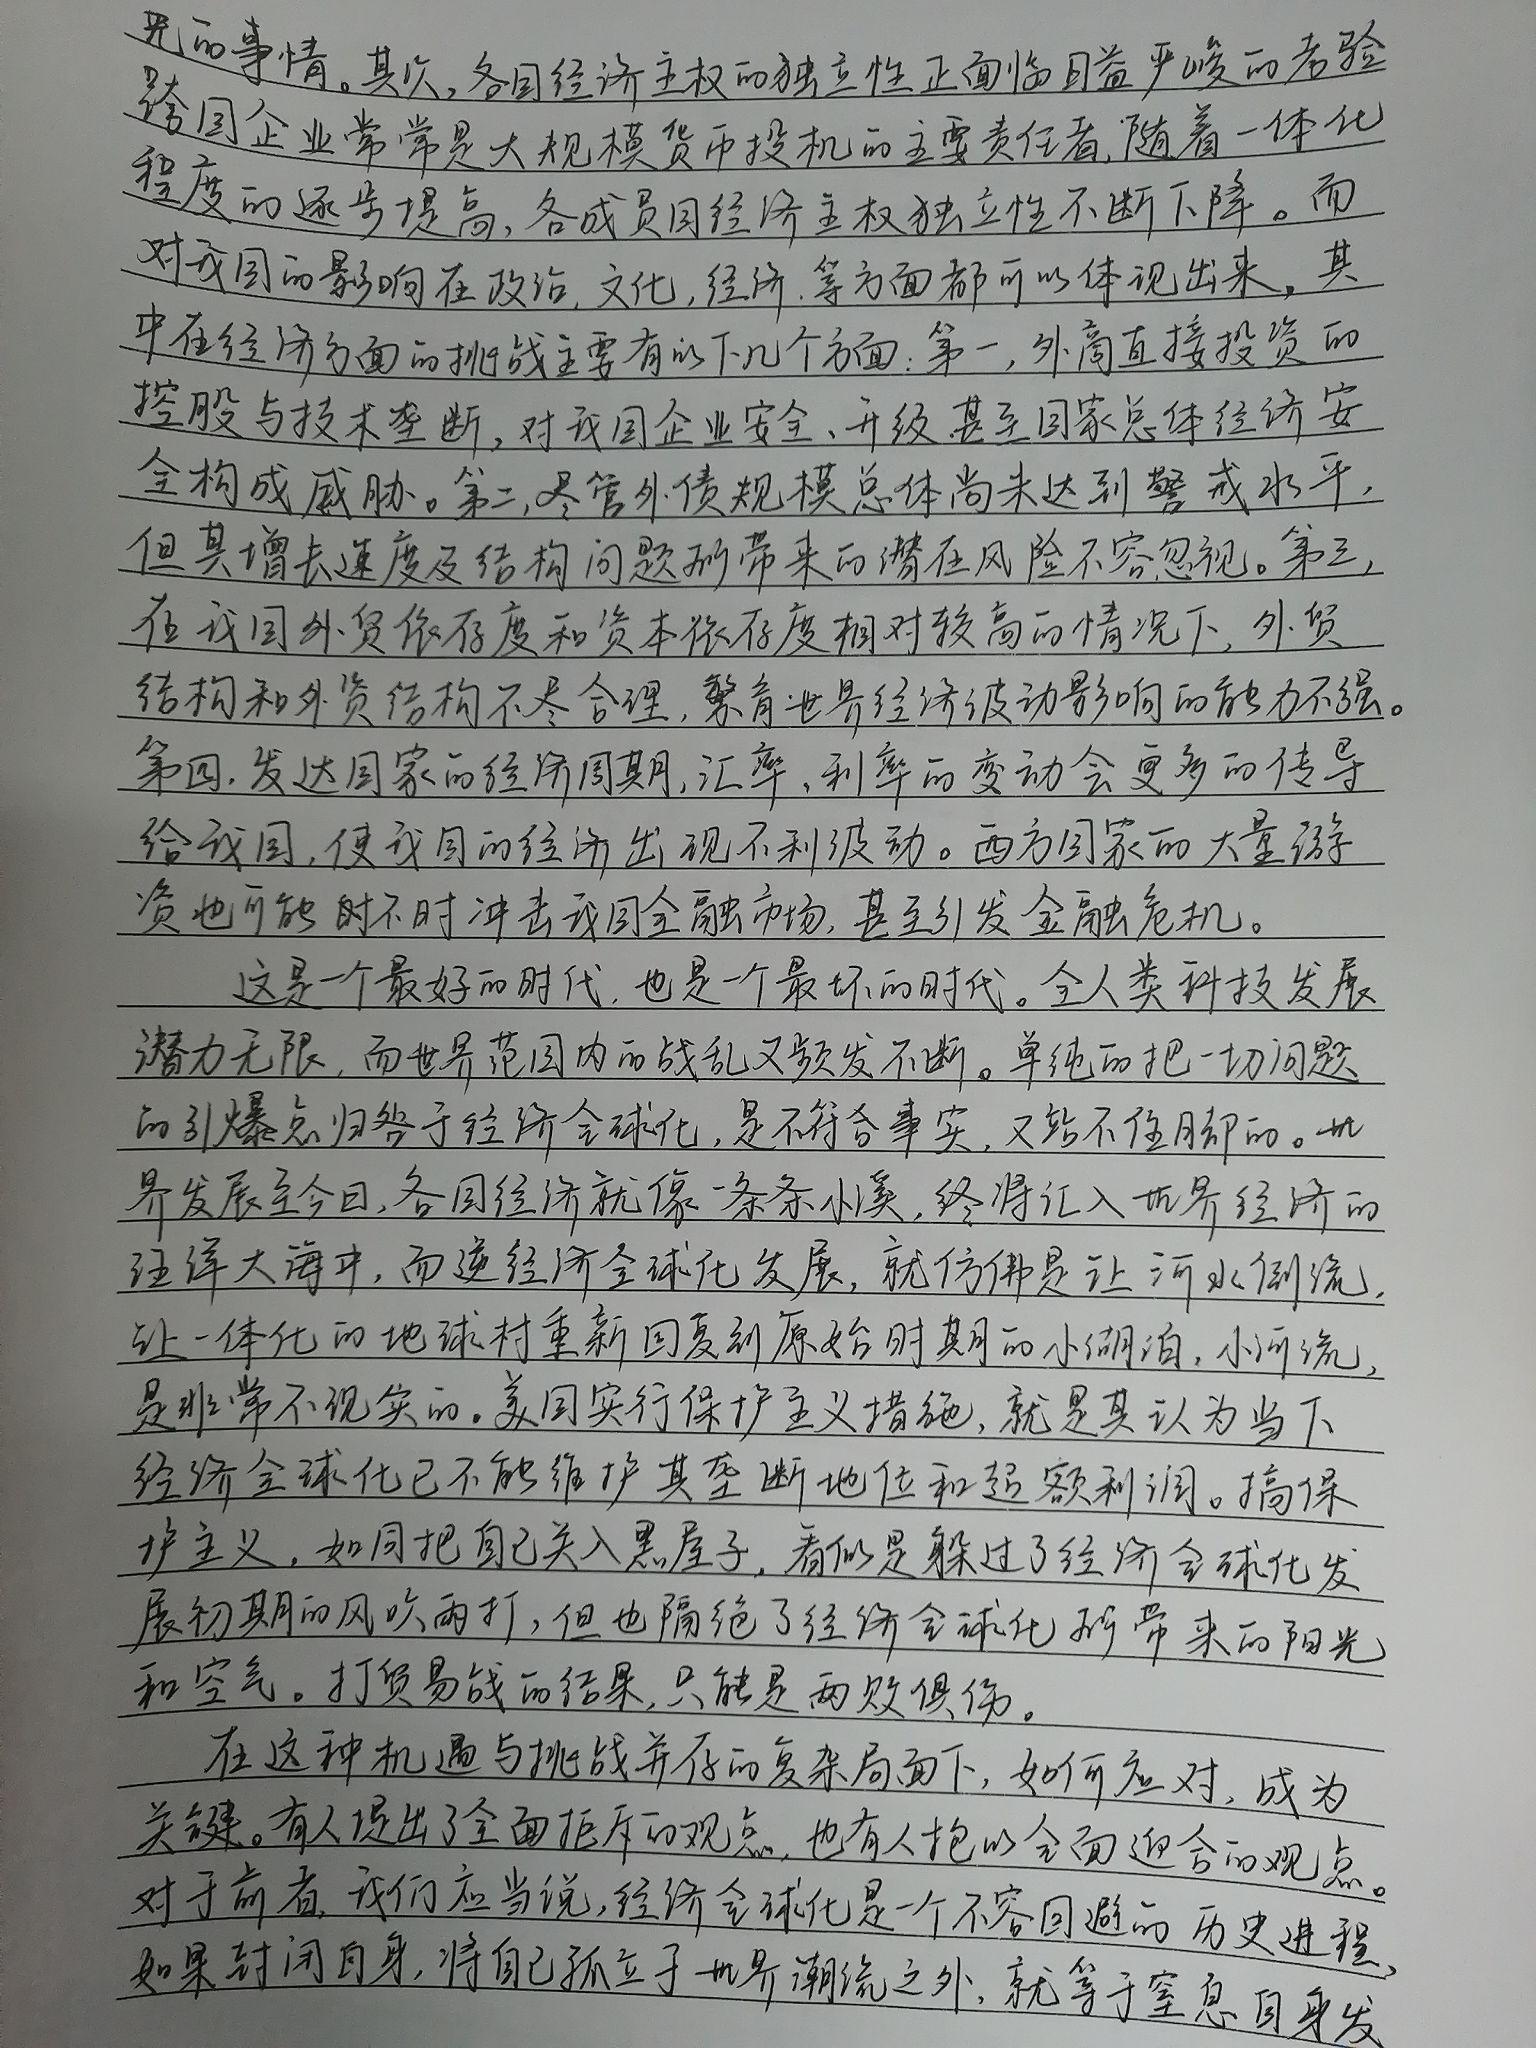 见的事情。其次，各国经济主权的独立性正面临日益严峻的考验
跨国企业常常是大规模货币投机的主要责任者，随着一体化
程度的逐步提高，各成员国经济主权独立性不断下降。而
对我国的影响在政治，文化，经济，等方面都可以体现出来，其
中在经济方面的挑战主要有以下几个方面：第一，外商直接投资的
控股与技术垄断，对我国企业安全、升级甚至国家总体经济安
全构成威胁。第二，尽管外债规模总体尚未达到警戒水平，
但其增长速度及结构问题所带来的潜在风险不容忽视。第三，
在我国外贸依存度和资本依存度相对较高的情况下，外贸
结构和外资结构不尽合理，禦育世界经济波动影响的能力不强。
第四，发达国家的经济周期，汇率，利率的变动会更多的传导
给我国，使我国的经济出现不利波动。西方国家的大量游
资也可能时不时冲击我国金融市场，甚至引发金融危机。
这是一个最好的时代，也是一个最坏的时代。全人类科技发展
潜力无限，而世界范围内的战乱又频发不断。单纯的把一切问题
的引爆点归咎于经济全球化，是不符合事实，又站不住脚的。世
界发展至今日，各国经济就像一条条小溪，终将汇入世界经济的
汪洋大海中，而逆经济全球化发展，就仿佛是让河水倒流，
让一体化的地球村重新回复到原始时期的小湖泊，小河流，
是非常不现实的。美国实行保护主义措施，就是其认为当下
经济全球化已不能维护其垄断地位和超额利润。搞保
护主义，如同把自己关入黑屋子，看似是躲过了经济全球化发
展初期的风吹雨打，但也隔绝了经济全球化所带来的阳光
和空气。打贸易战的结果，只能是两败俱伤。
在这种机遇与挑战并存的复杂局面下，如何应对，成为
关键。有人提出了全面拒斥的观点，也有人抱以全面迎合的观点。
对于前者，我们应当说，经济全球化是一个不容回避的历史进程，
如果封闭自身，将自己孤立于世界潮流之外，就等于窒息自身发